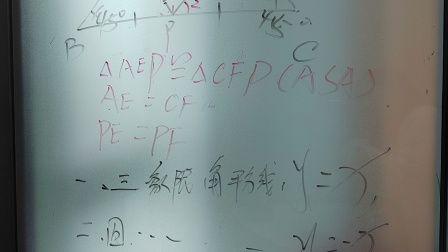 45° 45°
B P C
△AEP≌△CFP(ASA)
AE=CF
PE=PF
一、三象限角平线,y=x,
二.四… — y=-x